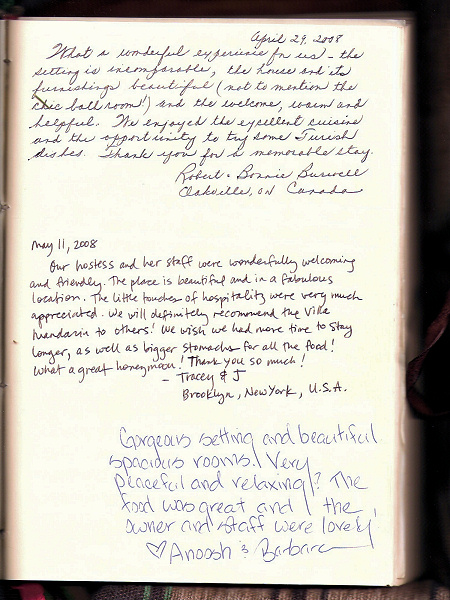 April 29, 2008
What a wonderful experience for us - the
setting is incomparable, the house and its
furnishings beautiful (not to mention the
chic ball room!) and the welcome, warm and
helpful. We enjoyed the excellent cuisine
and the opportunity to try some Turish
dishes. Thank you for a memorable stay.
Robert & Bonnie Burwell
Oakville, ON Canada
May 11, 2008
Our hostess and her staff were wonderfully welcoming
and friendly. The place is beautiful and in a fabulous
location. The little touches of hospitality were very much
appreciated. We will definitely recommend the Villa
Mandarin to others! We wish we had more time to stay
longer, as well as bigger stomachs for all the food!
What a great honeymoon! Thank you so much!
- Tracey & J
Brooklyn, New York, U.S.A.
Gorgeous setting and beautiful
spacious rooms! Very
peaceful and relaxing! The
food was great and the
owner and staff were lovely!
♡ Anoosh & Barbara